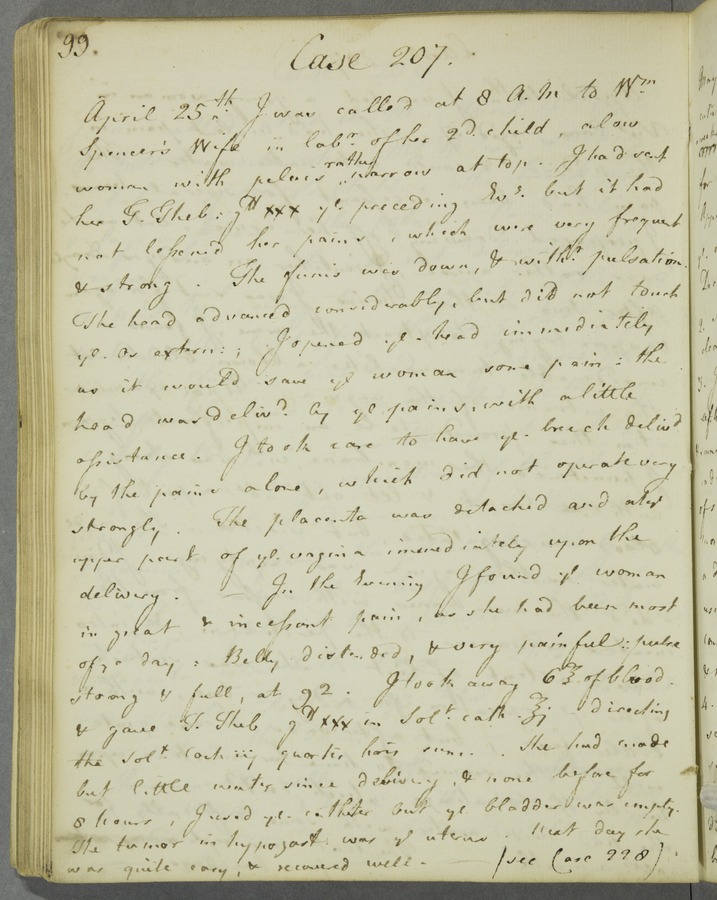 99.
Case 207.
April 25th I was called at 8 A.M to Wm
Spencer's Wife in labr of her 2d. child, a low
woman with pelvis rather narrow at top. I had sent
her G. Gheb: gtt xxx ye preceding Evg. but it had
not lessened her pains, which were very frequent
& strong. The funis was down, & witht pulsation.
The head advanced considerably, but did not touch
ye. os extern:; I opened ye. head immediately
as it would save ye woman some pain: the
head was delivd. by ye pains, with a little
assistance. I took care to have ye. breech delivd
by the pains alone, which did not operate very
strongly. The placenta was detached and at ye
upper part of ye. vagina immediately upon the
delivery. — In the Evening I found ye woman
in great & incessant pain, as she had been most
of ye day: Belly distended, & very painful: pulse
strong & full, at 92. I took away 6℥ of blood.
& gave T. Theb gtt xxx in Solt. cath. ℥j directing
the solt coch iij quartis horis sum. . She had made
but little water since delivery, & none before for
8 hours, I used ye. catheter but ye bladder was empty.
The tumor in hypogast. was ye uterus. Next day she
was quite easy, & recovered well. — (see Case 228)